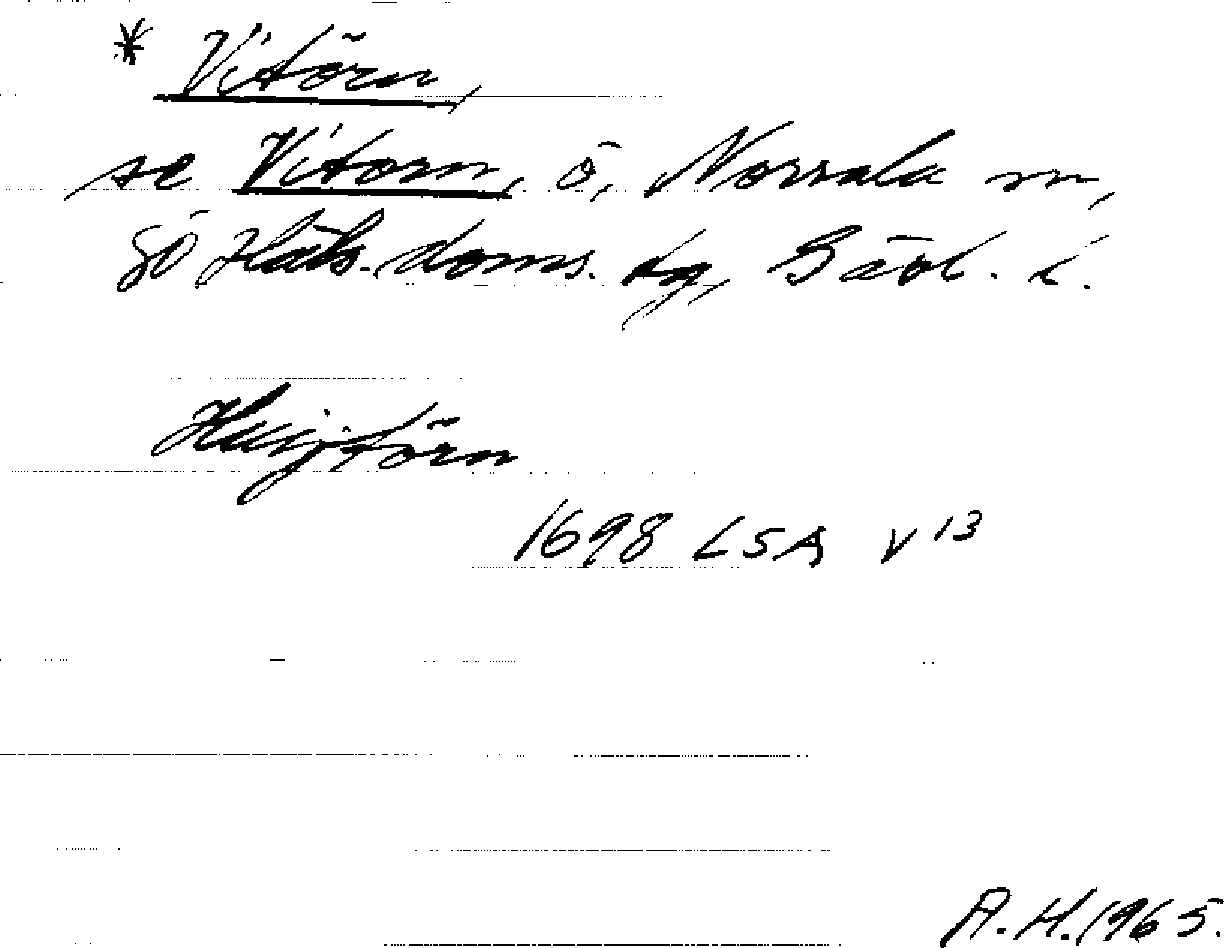 * Vitörn,
se Vitorn, ö, Norrala sn,
SÖ Häls. doms. tg, Gävl. l.
Huijtörn
1698 LSA V 13
A.H. 1965.